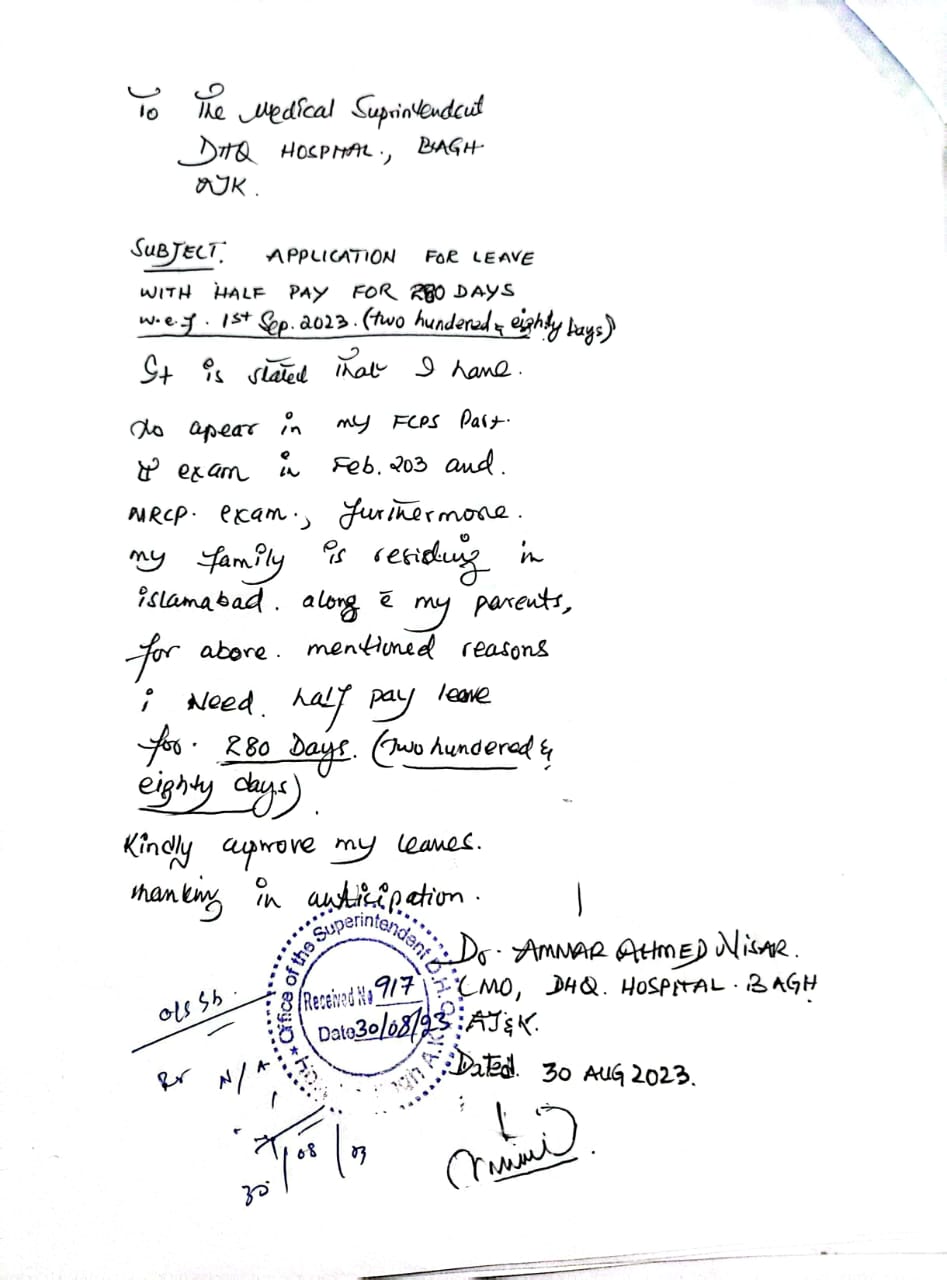 To The Medical Suprintendent
DHQ HOSPITAL., BAGH
AJK.
SUBJECT. APPLICATION FOR LEAVE
WITH HALF PAY FOR 280 DAYS
w.e.f. 1st Sep. 2023. (two hundered & eighty Days)
It is stated that I have.
to apear in my FCPS Part.
II exam in Feb. 203 and.
MRCP. exam., furthermore.
my family is residing in
islamabad. along c̄ my parents,
for above. mentioned reasons
i Need. half pay leave
for. 280 Days. (two hundered &
eighty days).
Kindly approve my leaves.
thanking in anticipation.
Dr. AMMAR AHMED NISAR.
CMO, DHQ. HOSPITAL. BAGH
AJ&K.
Dated. 30 AUG 2023.
Office of the Superintendent D.H.Q
Received No 917
Date 30/08/23
N/A
30/08/23